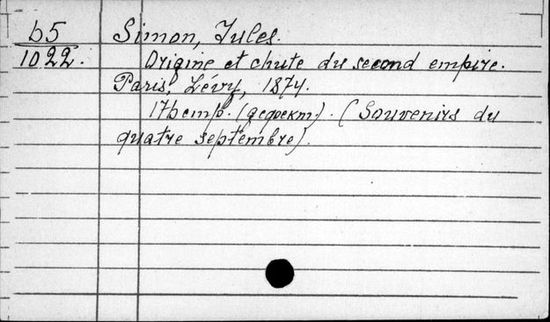 b5
1022.
Simon, Jules.
Origine et chute du second empire.
Paris, Lévy, 1874.
(дефект). (Souvenirs du
quatre septembre).